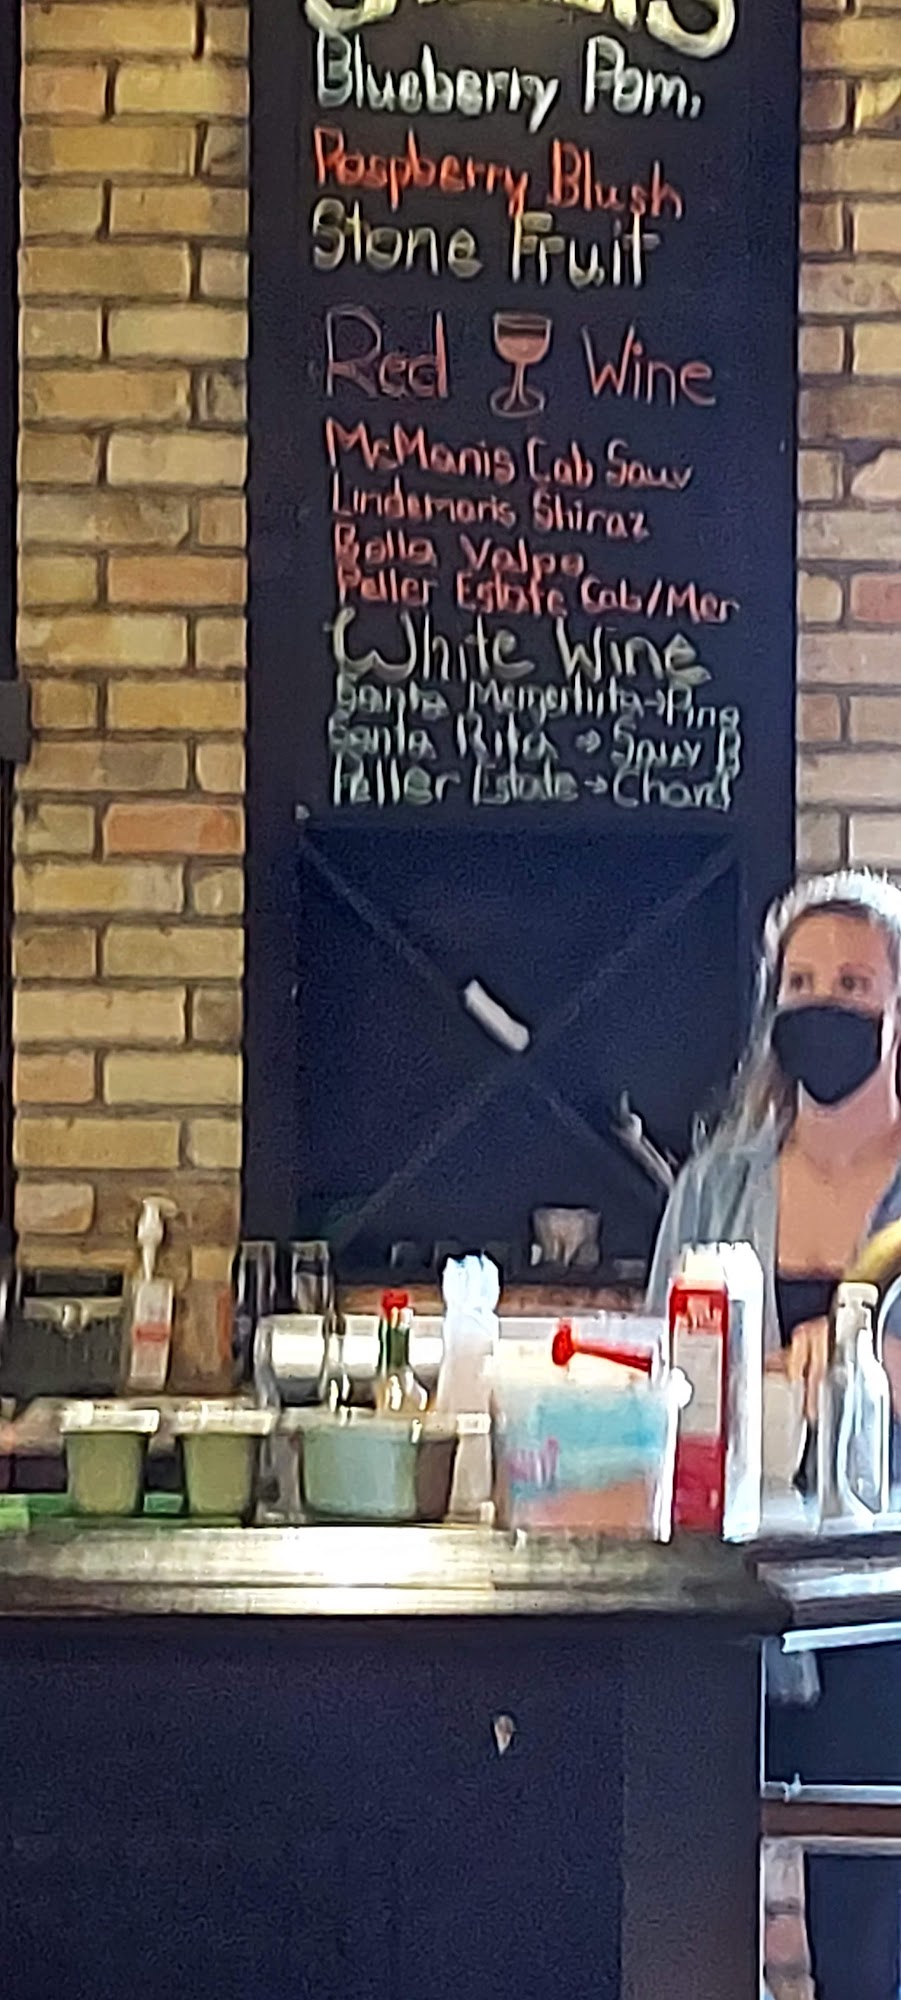 Blueberry Pom.
Raspberry Blush
Stone Fruit
Red Wine
McManis Cab Sauv
Lindemans Shiraz
Bolla Valpo
Peller Estate Cab/Mer
White Wine
Santa Margarhita→Ping
Santa Rita → Sauv B
Peller Estate → Chard